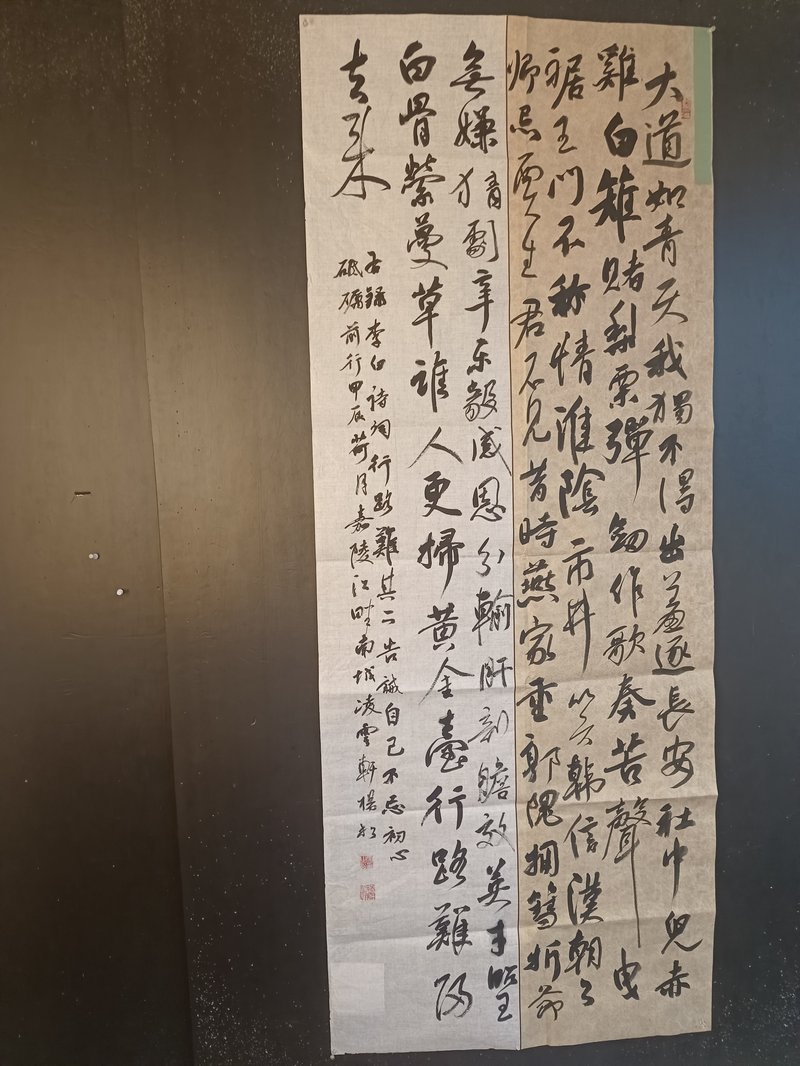 大道如青天我獨不得出羞逐長安社中兒赤
雞白雉賭梨栗彈劍作歌奏苦聲曳
裾王門不称情淮陰市井笑韓信漢朝公
卿忌賈生君不見昔時燕家重郭隗擁篲折節
無嫌猜劇辛乐毅感恩分輸肝剖膽效英才昭王
白骨縈蔓草誰人更掃黄金臺行路難歸
去來
右錄李白詩詞行路難其二告誡自己不忘初心
砥礪前行甲辰荷月嘉陵江畔南城凌雲軒楊